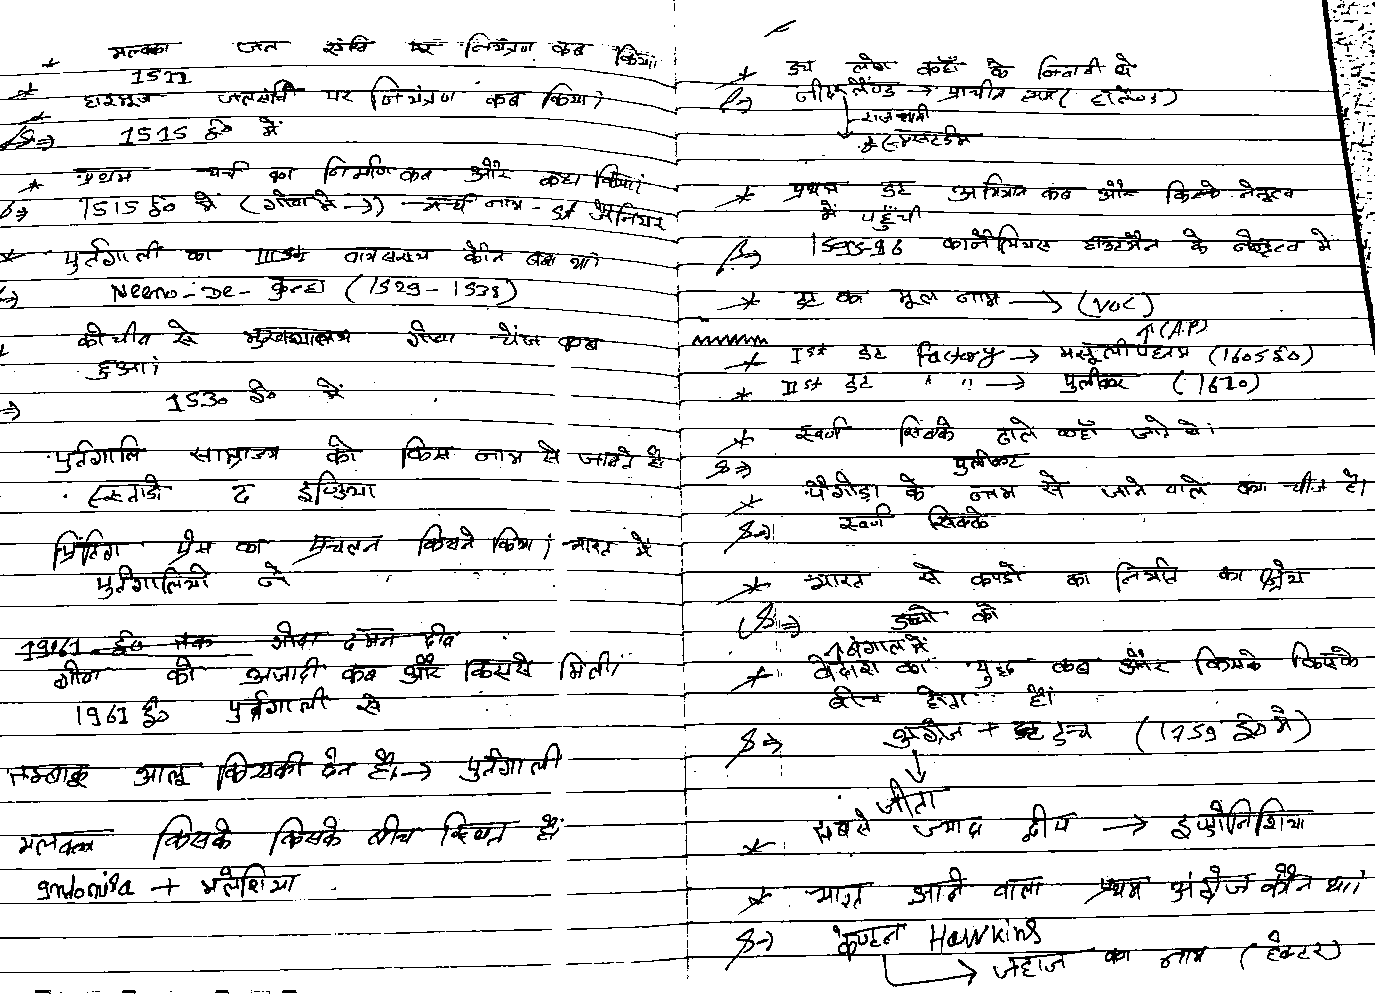 * मलक्का जल संधि पर नियंत्रण कब किया
1511
* हारमुज जलसंधि पर नियंत्रण कब किया।
1515 ई० में
* प्रथम चर्च का निर्माण कब और कहा किया।
1515 ई० में (गोवा में →) चर्च नाम -
* पुर्तगाली का वायसराय कौन था।
Neeno-De-कुन्हा (1529-1538)
कोचीन से मुख्यालय गोवा चेंज कब
हुआ।
1530 ई० में
पुर्तगालि साम्राज्य को किस नाम से जानते है
एस्तादो द इण्डिया
प्रिंटिंग प्रेस का प्रचलन किसने किया। भारत में
पुर्तगालियो ने
1961 ई० तक गोवा दमन दीव
गोवा को अजादी कब और किससे मिली।
1961 ई० पुर्तगाली से
तम्बाकू आलू किसकी देन है। → पुर्तगाली
मलक्का किसके किसके बीच स्थित है।
Indonisa + मलेशिया
* डच लोग कहाँ के निवासी थे
नीदरलैण्ड → प्राचीन नाम (हॉलैण्ड)
राजधानी
एम्सटर्डम
* प्रथम डच अभियान कब और किसके नेतृत्व
में पहुँची
1595-96 कार्नेलियस हाउटमैन के नेतृत्व में
* डच का मूल नाम → (VOC)
(A.P)
* Ist डच Factory → मसूलीपट्टनम (1605 ई०)
* IIst डच " " → पुलीकट (1610)
* स्वर्ण सिक्के ढाले कहाँ जाते थे।
पुलीकट
* पैगोडा के नाम से जाने वाले क्या चीज है।
स्वर्ण सिक्के
* भारत से कपडो का निर्यात का श्रेय
डचो को
बंगाल में
* वेदारा का युद्ध कब और किसके किसके
बीच होता है।
अंग्रेज + डच (1759 ई० में)
जीता
* सबसे ज्यादा द्वीप → इण्डोनेशिया
* भारत आने वाला प्रथम अंग्रेज कौन था।
कैप्टन Hawkins
→ जहाज का नाम (हेक्टर)